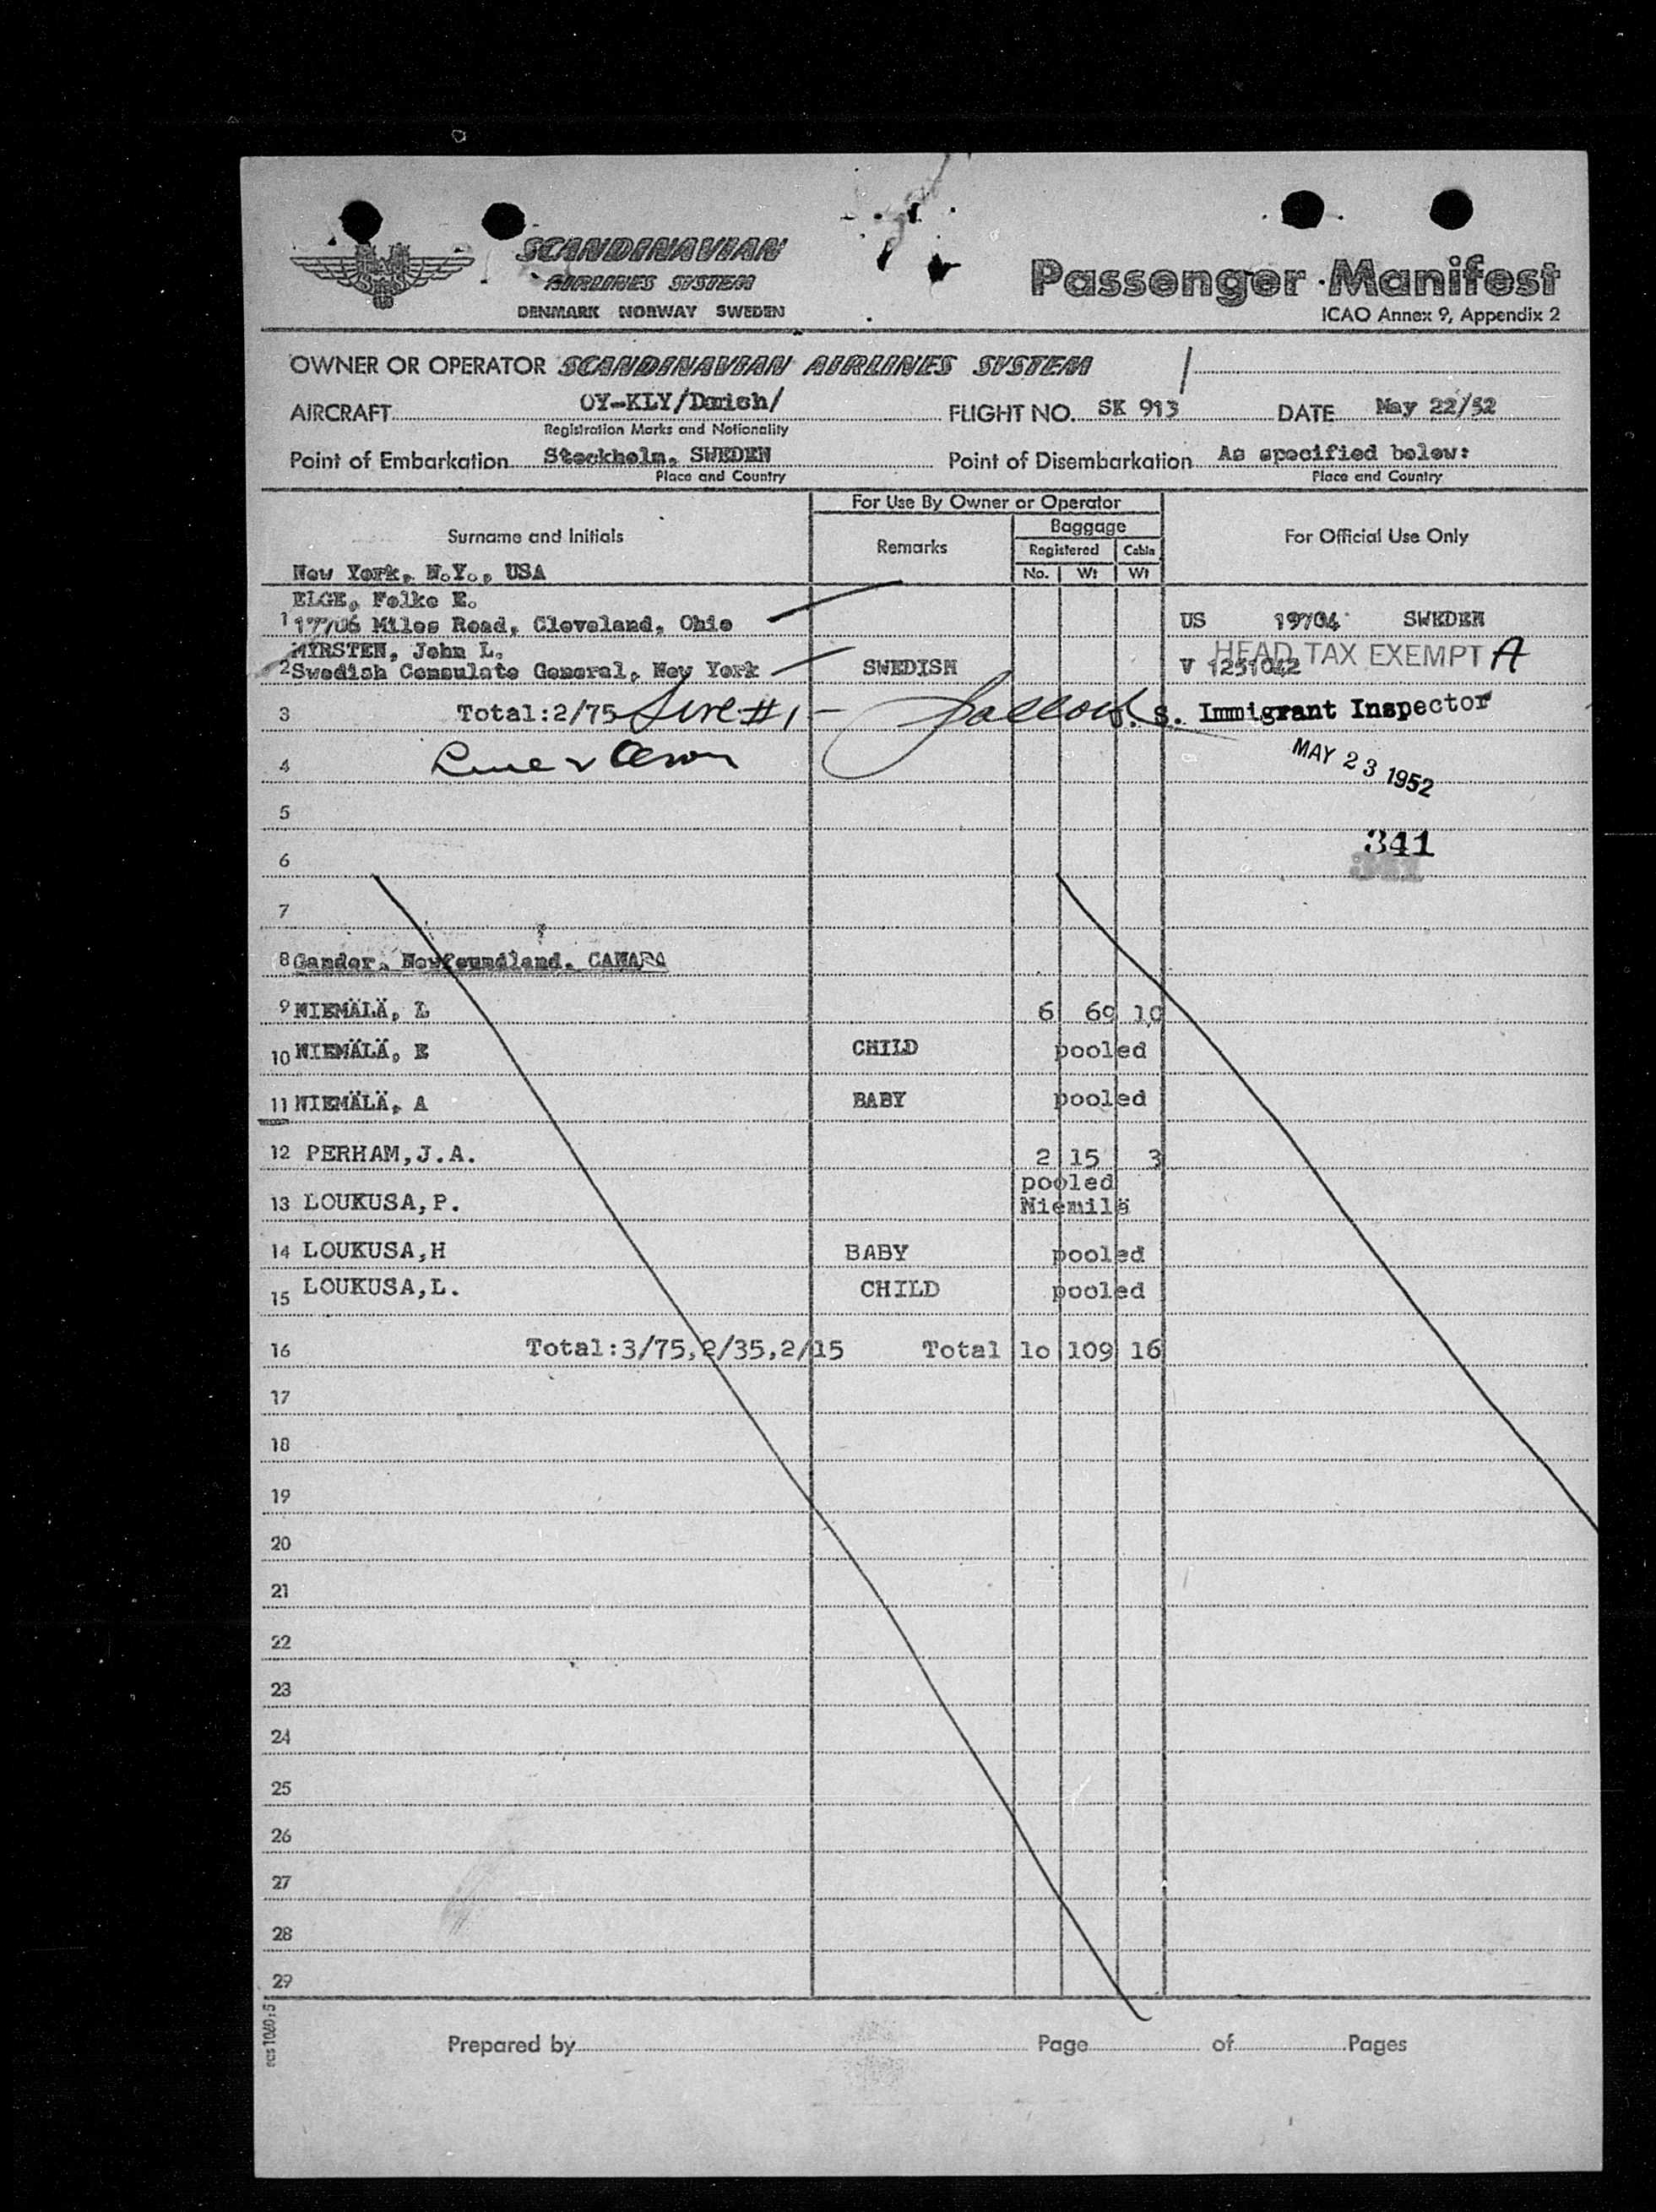 SCANDINAVIAN
AIRLINES SYSTEM
DENMARK NORWAY SWEDEN
Passenger Manifest
ICAO Annex 9, Appendix 2
OWNER OR OPERATOR SCANDINAVIAN AIRLINES SYSTEM
AIRCRAFT OY-KLY/Danish/ FLIGHT NO. SK 913 DATE May 22/52
Registration Marks and Nationality
Point of Embarkation Stockholm, SWEDEN Point of Disembarkation As specified below:
Place and Country Place and Country
For Use By Owner or Operator
Surname and Initials Remarks Baggage For Official Use Only
Registered Cabin
New York, N.Y., USA No. Wt Wt
ELGE, Folke E.
1 17706 Miles Road, Cleveland, Ohio US 19704 SWEDEN
MYRSTEN, John L.
HEAD TAX EXEMPT A
2 Swedish Consulate General, New York SWEDISH V 1251042
3 Total:2/75 Line #1 U. S. Immigrant Inspector
4 MAY 23 1952
5
341
6
7
8 Gander, Newfoundland, CANADA
9 NIEMÄLÄ, L 6 69 10
10 NIEMÄLÄ, E CHILD pooled
11 NIEMÄLÄ, A BABY pooled
12 PERHAM,J.A. 2 15 3
pooled
13 LOUKUSA,P. Niemilä
14 LOUKUSA,H BABY pooled
15 LOUKUSA,L. CHILD pooled
16 Total:3/75,2/35,2/15 Total 1o 109 16
17
18
19
20
21
22
23
24
25
26
27
28
29
Prepared by Page of Pages